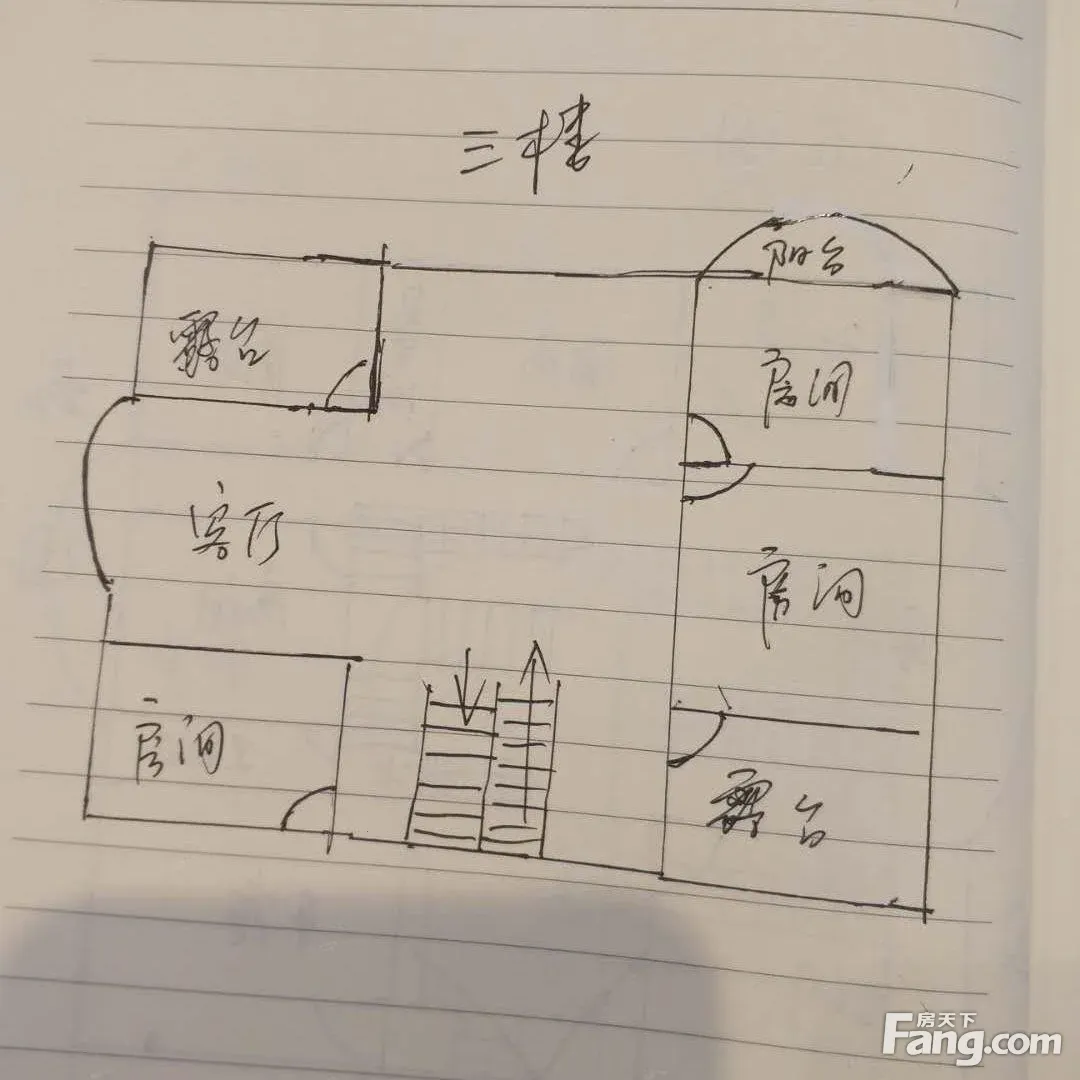 三楼
阳台
露台
房间
客厅
房间
房间
露台
房天下
Fang.com